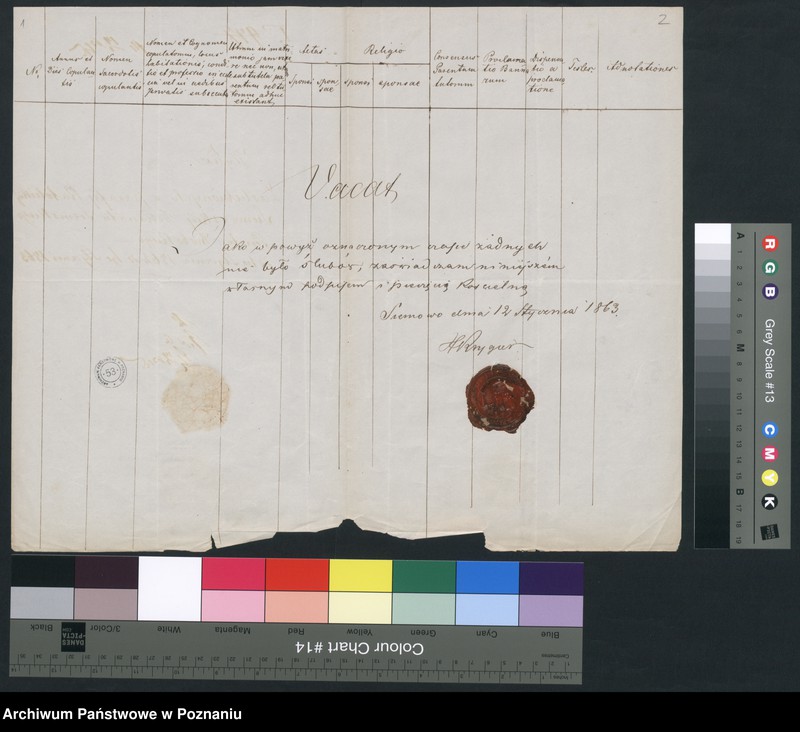 1
2
No
Annus et Dies Copulationis
Nomen Sacerdotis copulantis
Nomen et Cognomen copulatorum, locus habitationis, conditio et professio
Utrum in matrimonio jam vixere nec non, utrum sub tutela parentum vel tutorum adhuc existant,
Aetas
sponsi
sponsae
Religio
sponsi
sponsae
Consensus Parentum
Proclamatio Bannorum
Dispensatio a proclamatione
Testes
Adnotationes
Vacat
Jako w powyż oznaczonym czasie żadnych
nie było Ślubów, zaświadczam niniejszém
własnym podpisem i pieczęcią Kościelną
Siemowo dnia 12 Stycznia 1863.
53
Grey Scale #13
R
G
B
C
M
Y
K
A 1 2 3 4 5 6 M 8 9 10 11 12 13 14 15 B 17 18 19
Colour Chart #14
Blue
Cyan
Green
Yellow
Red
Magenta
White
3/Color
Black
DANES
PICTA
Archiwum Państwowe w Poznaniu